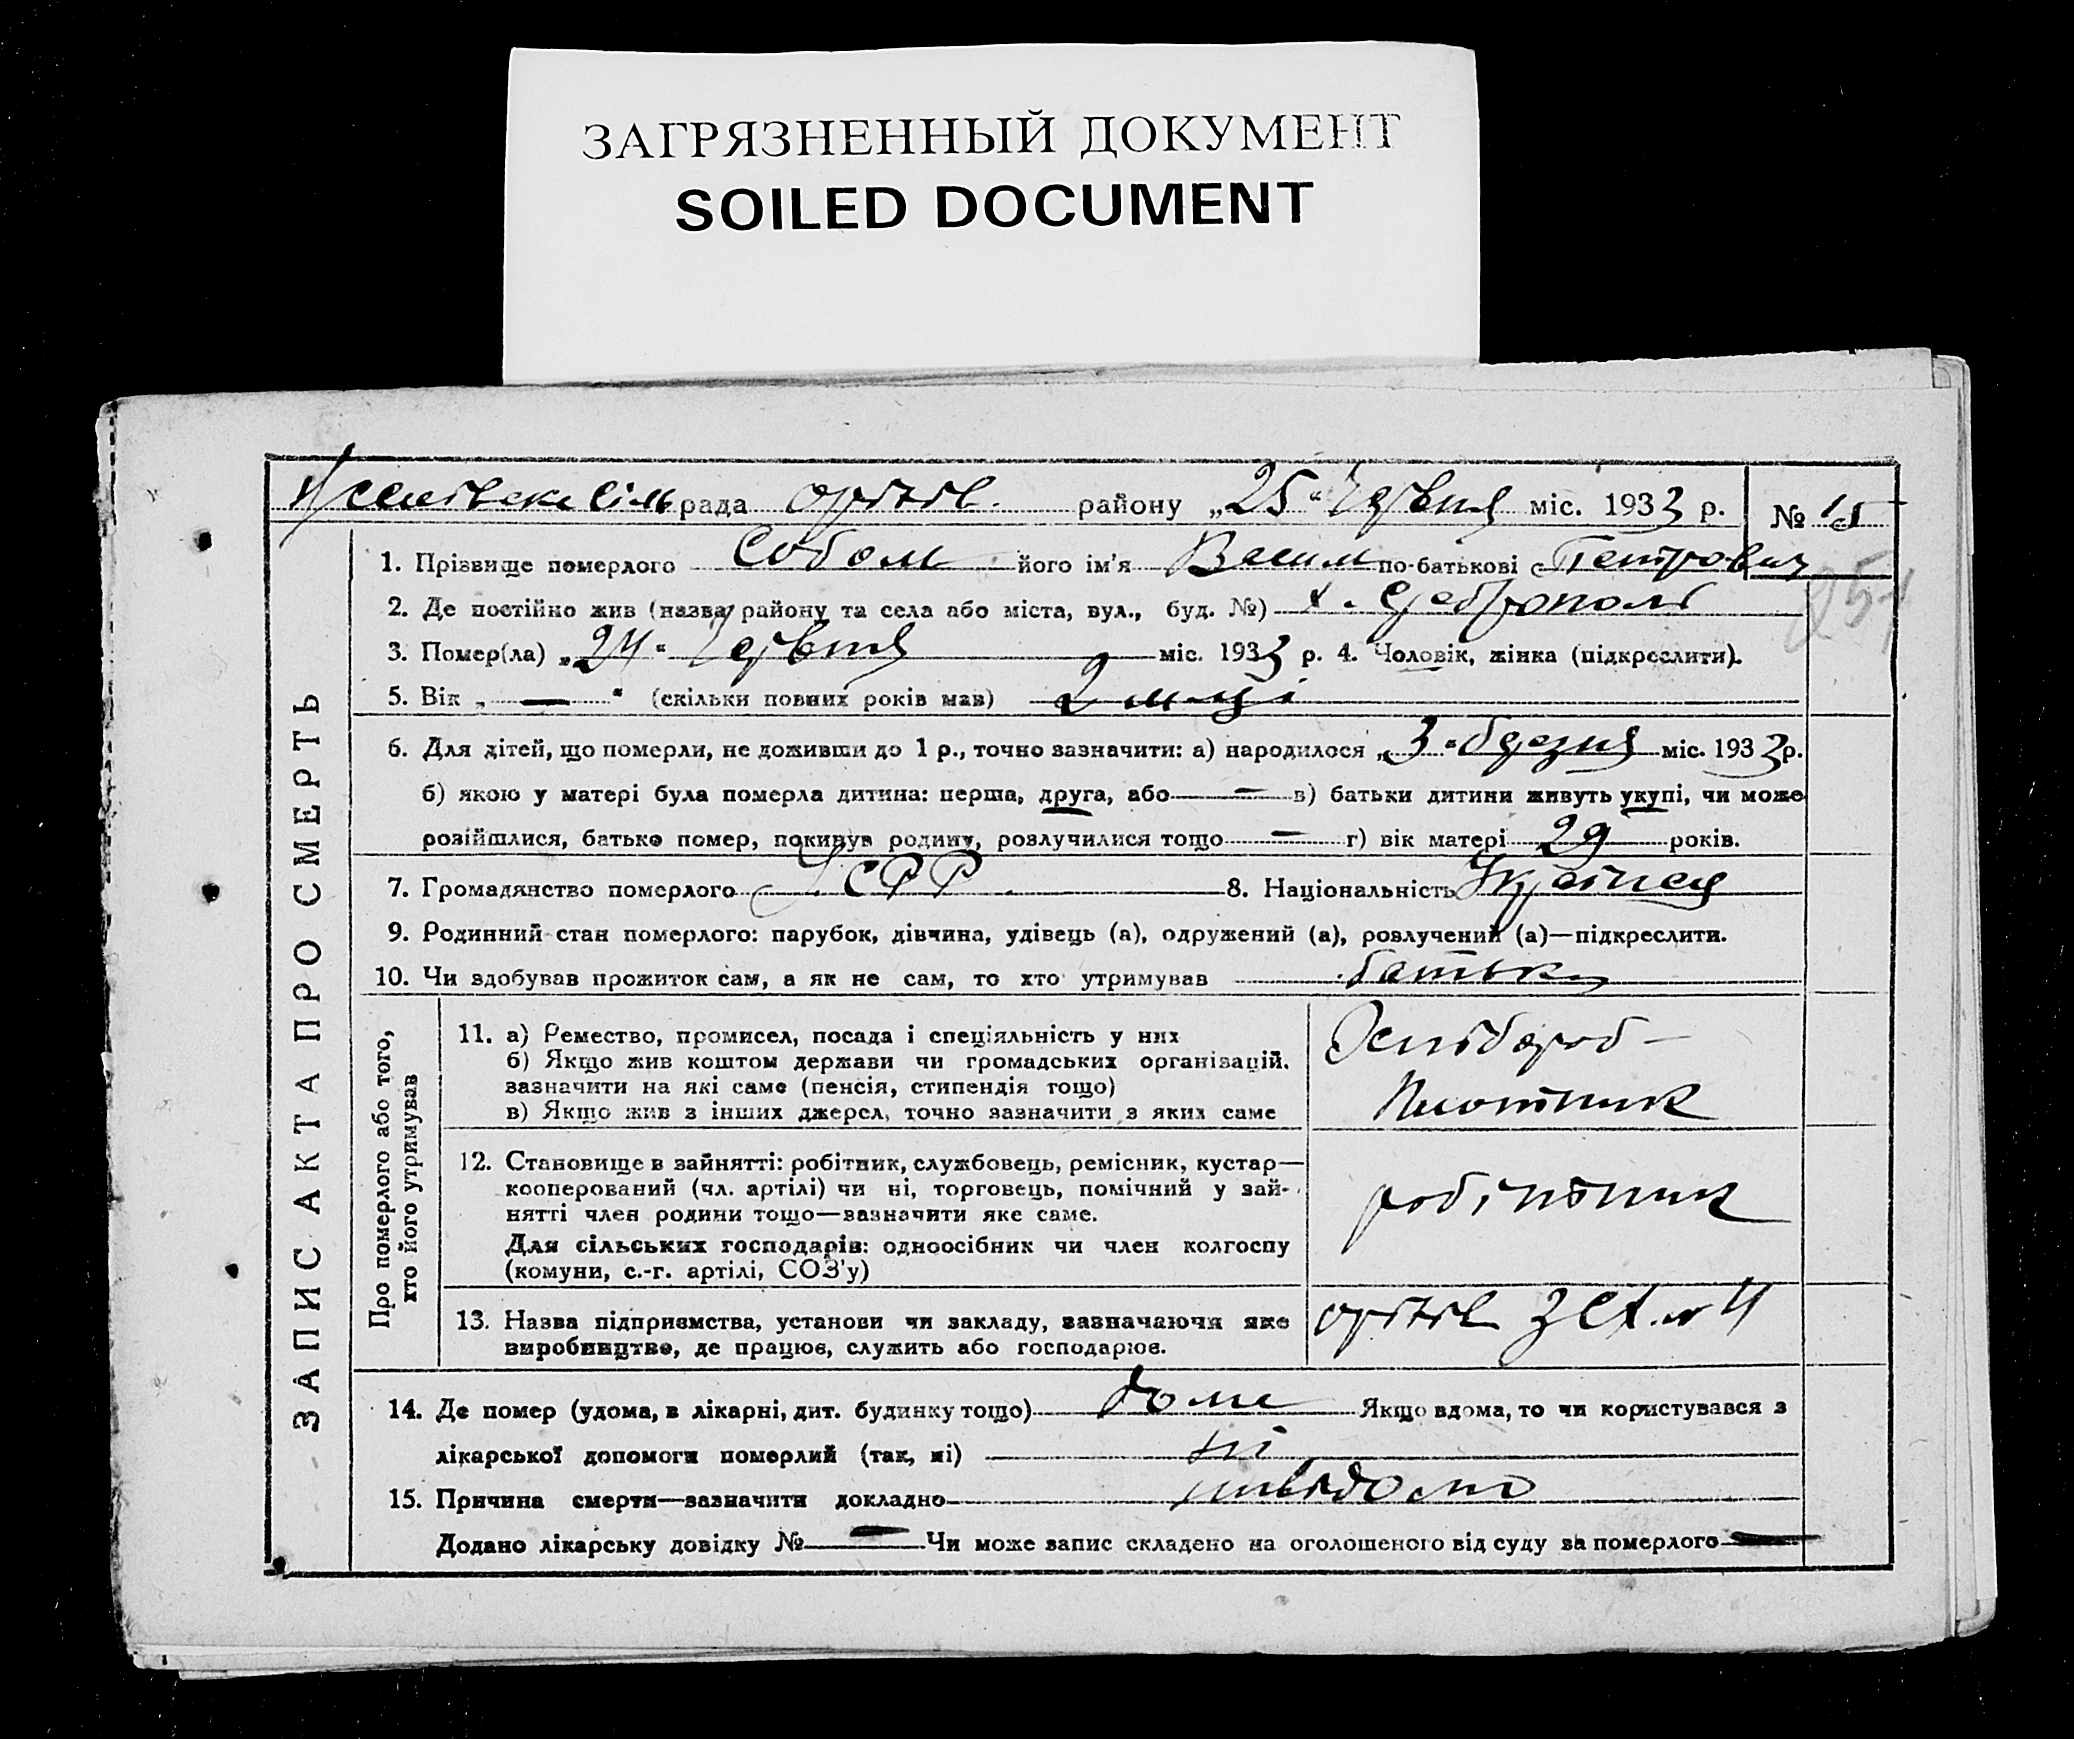 ЗАГРЯЗНЕННЫЙ ДОКУМЕНТ
SOILED DOCUMENT
рада оріхів. району „25“ червня міс. 1933 р. № 15
1. Прізвище померлого Соболь його ім'я Васил по-батькові Петрович
2. Де постійно жив (назва району та села або міста, вул., буд. №) х.
3. Помер(ла) „24“ червня міс. 1933 р. 4. Чоловік, жінка (підкреслити).
5. Вік „—“ (скільки повних років мав) 2 м-ці
6. Для дітей, що померли, не доживши до 1 р., точно зазначити: а) народилося „3“ березня міс. 1933 р.
б) якою у матері була померла дитина: перша, друга, або — в) батьки дитини живуть укупі, чи може
розійшлися, батько помер, покинув родину, розлучилися тощо — г) вік матері 29 років.
7. Громадянство померлого УСРР. 8. Національність
9. Родинний стан померлого: парубок, дівчина, удівець (а), одружений (а), розлучений (а)—підкреслити.
10. Чи здобував прожиток сам, а як не сам, то хто утримував батьки
ЗАПИС АКТА ПРО СМЕРТЬ
Про померлого або того,
хто його утримував
11. а) Ремество, промисел, посада і спеціяльність у них
б) Якщо жив коштом держави чи громадських організацій.
зазначити на які саме (пенсія, стипендія тощо)
в) Якщо жив з інших джерел, точно зазначити з яких саме
Плотник
12. Становище в зайнятті: робітник, службовець, ремісник, кустар—
кооперований (чл. артілі) чи ні, торговець, помічний у зай-
нятті член родини тощо—зазначити яке саме.
Для сільських господарів: одноосібник чи член колгоспу
(комуни, с.-г. артілі, СОЗ'у)
робітник
13. Назва підприємства, установи чи закладу, зазначаючи яке
виробництво, де працює, служить або господарює.
оріхів
14. Де помер (удома, в лікарні, дит. будинку тощо) дома Якщо вдома, то чи користувався з
лікарської допомоги померлий (так, ні) ні
15. Причина смерти—зазначити докладно
Додано лікарську довідку № — Чи може запис складено на оголошеного від суду за померлого —